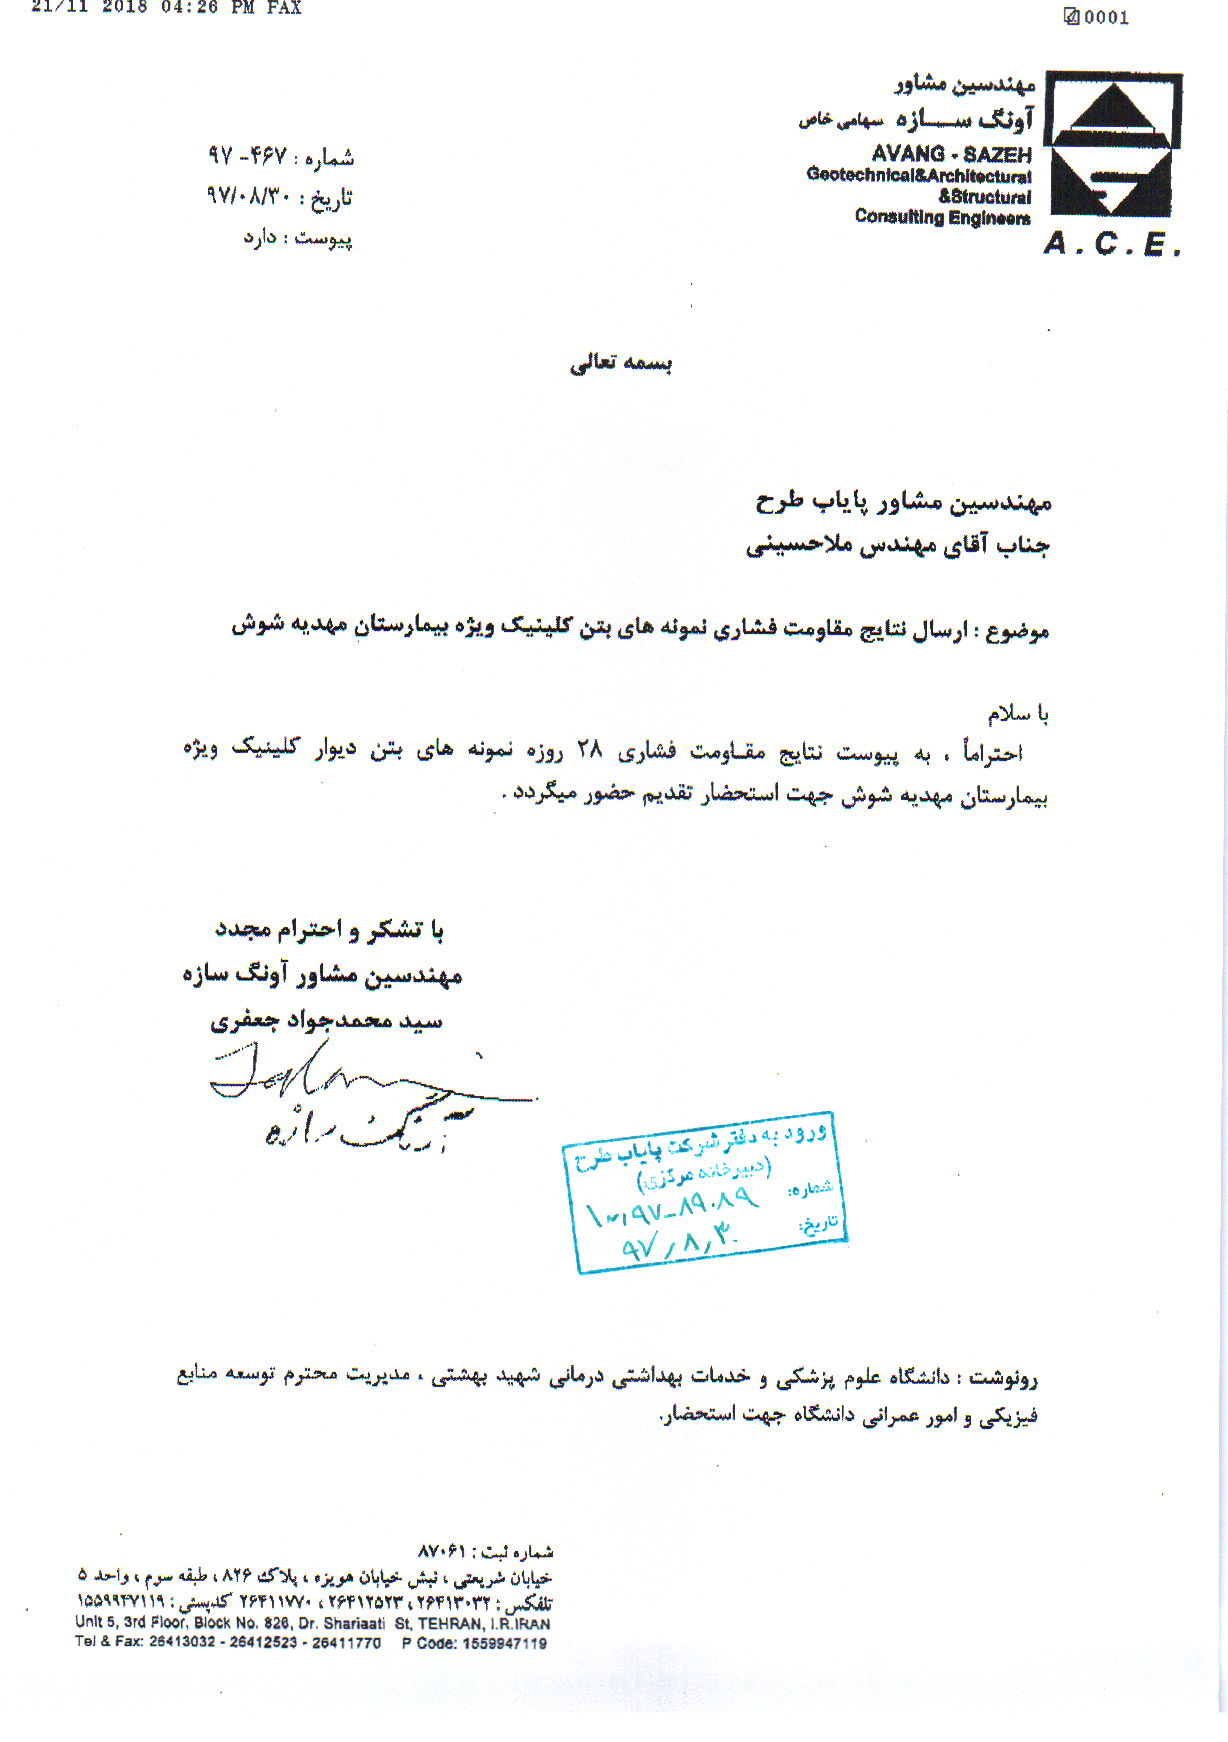 21/11 2018 04:26 PM FAX
0001
مهندسین مشاور
آونگ ســازه سهامی خاص
AVANG - SAZEH
Geotechnical&Architectural
&Structural
Consulting Engineers
A . C . E .
شماره : ۴۶۷- ۹۷
تاریخ : ۹۷/۰۸/۳۰
پیوست : دارد
بسمه تعالی
مهندسین مشاور پایاب طرح
جناب آقای مهندس ملاحسینی
موضوع : ارسال نتایج مقاومت فشاری نمونه های بتن کلینیک ویژه بیمارستان مهدیه شوش
با سلام
احتراماً ، به پیوست نتایج مقـاومت فشاری ۲۸ روزه نمونه های بتن دیوار کلینیک ویژه
بیمارستان مهدیه شوش جهت استحضار تقدیم حضور میگردد .
با تشکر و احترام مجدد
مهندسین مشاور آونگ سازه
سید محمدجواد جعفری
ورود به دفتر شرکت پایاب طرح
(دبیرخانه مرکزی)
شماره:
تاریخ: ۹۷/۸/۳۰
رونوشت : دانشگاه علوم پزشکی و خدمات بهداشتی درمانی شهید بهشتی ، مدیریت محترم توسعه منابع
فیزیکی و امور عمرانی دانشگاه جهت استحضار.
شماره ثبت : ۸۷۰۶۱
خیابان شریعتی ، نبش خیابان هویزه ، پلاک ۸۲۶ ، طبقه سوم ، واحد ۵
تلفکس : ۲۶۴۱۳۰۳۲ ، ۲۶۴۱۲۵۲۳ ، ۲۶۴۱۱۷۷۰ کدپستی : ۱۵۵۹۹۴۷۱۱۹
Unit 5, 3rd Floor, Block No. 826, Dr. Shariaati St, TEHRAN, I.R.IRAN
Tel & Fax: 26413032 - 26412523 - 26411770 P Code: 1559947119